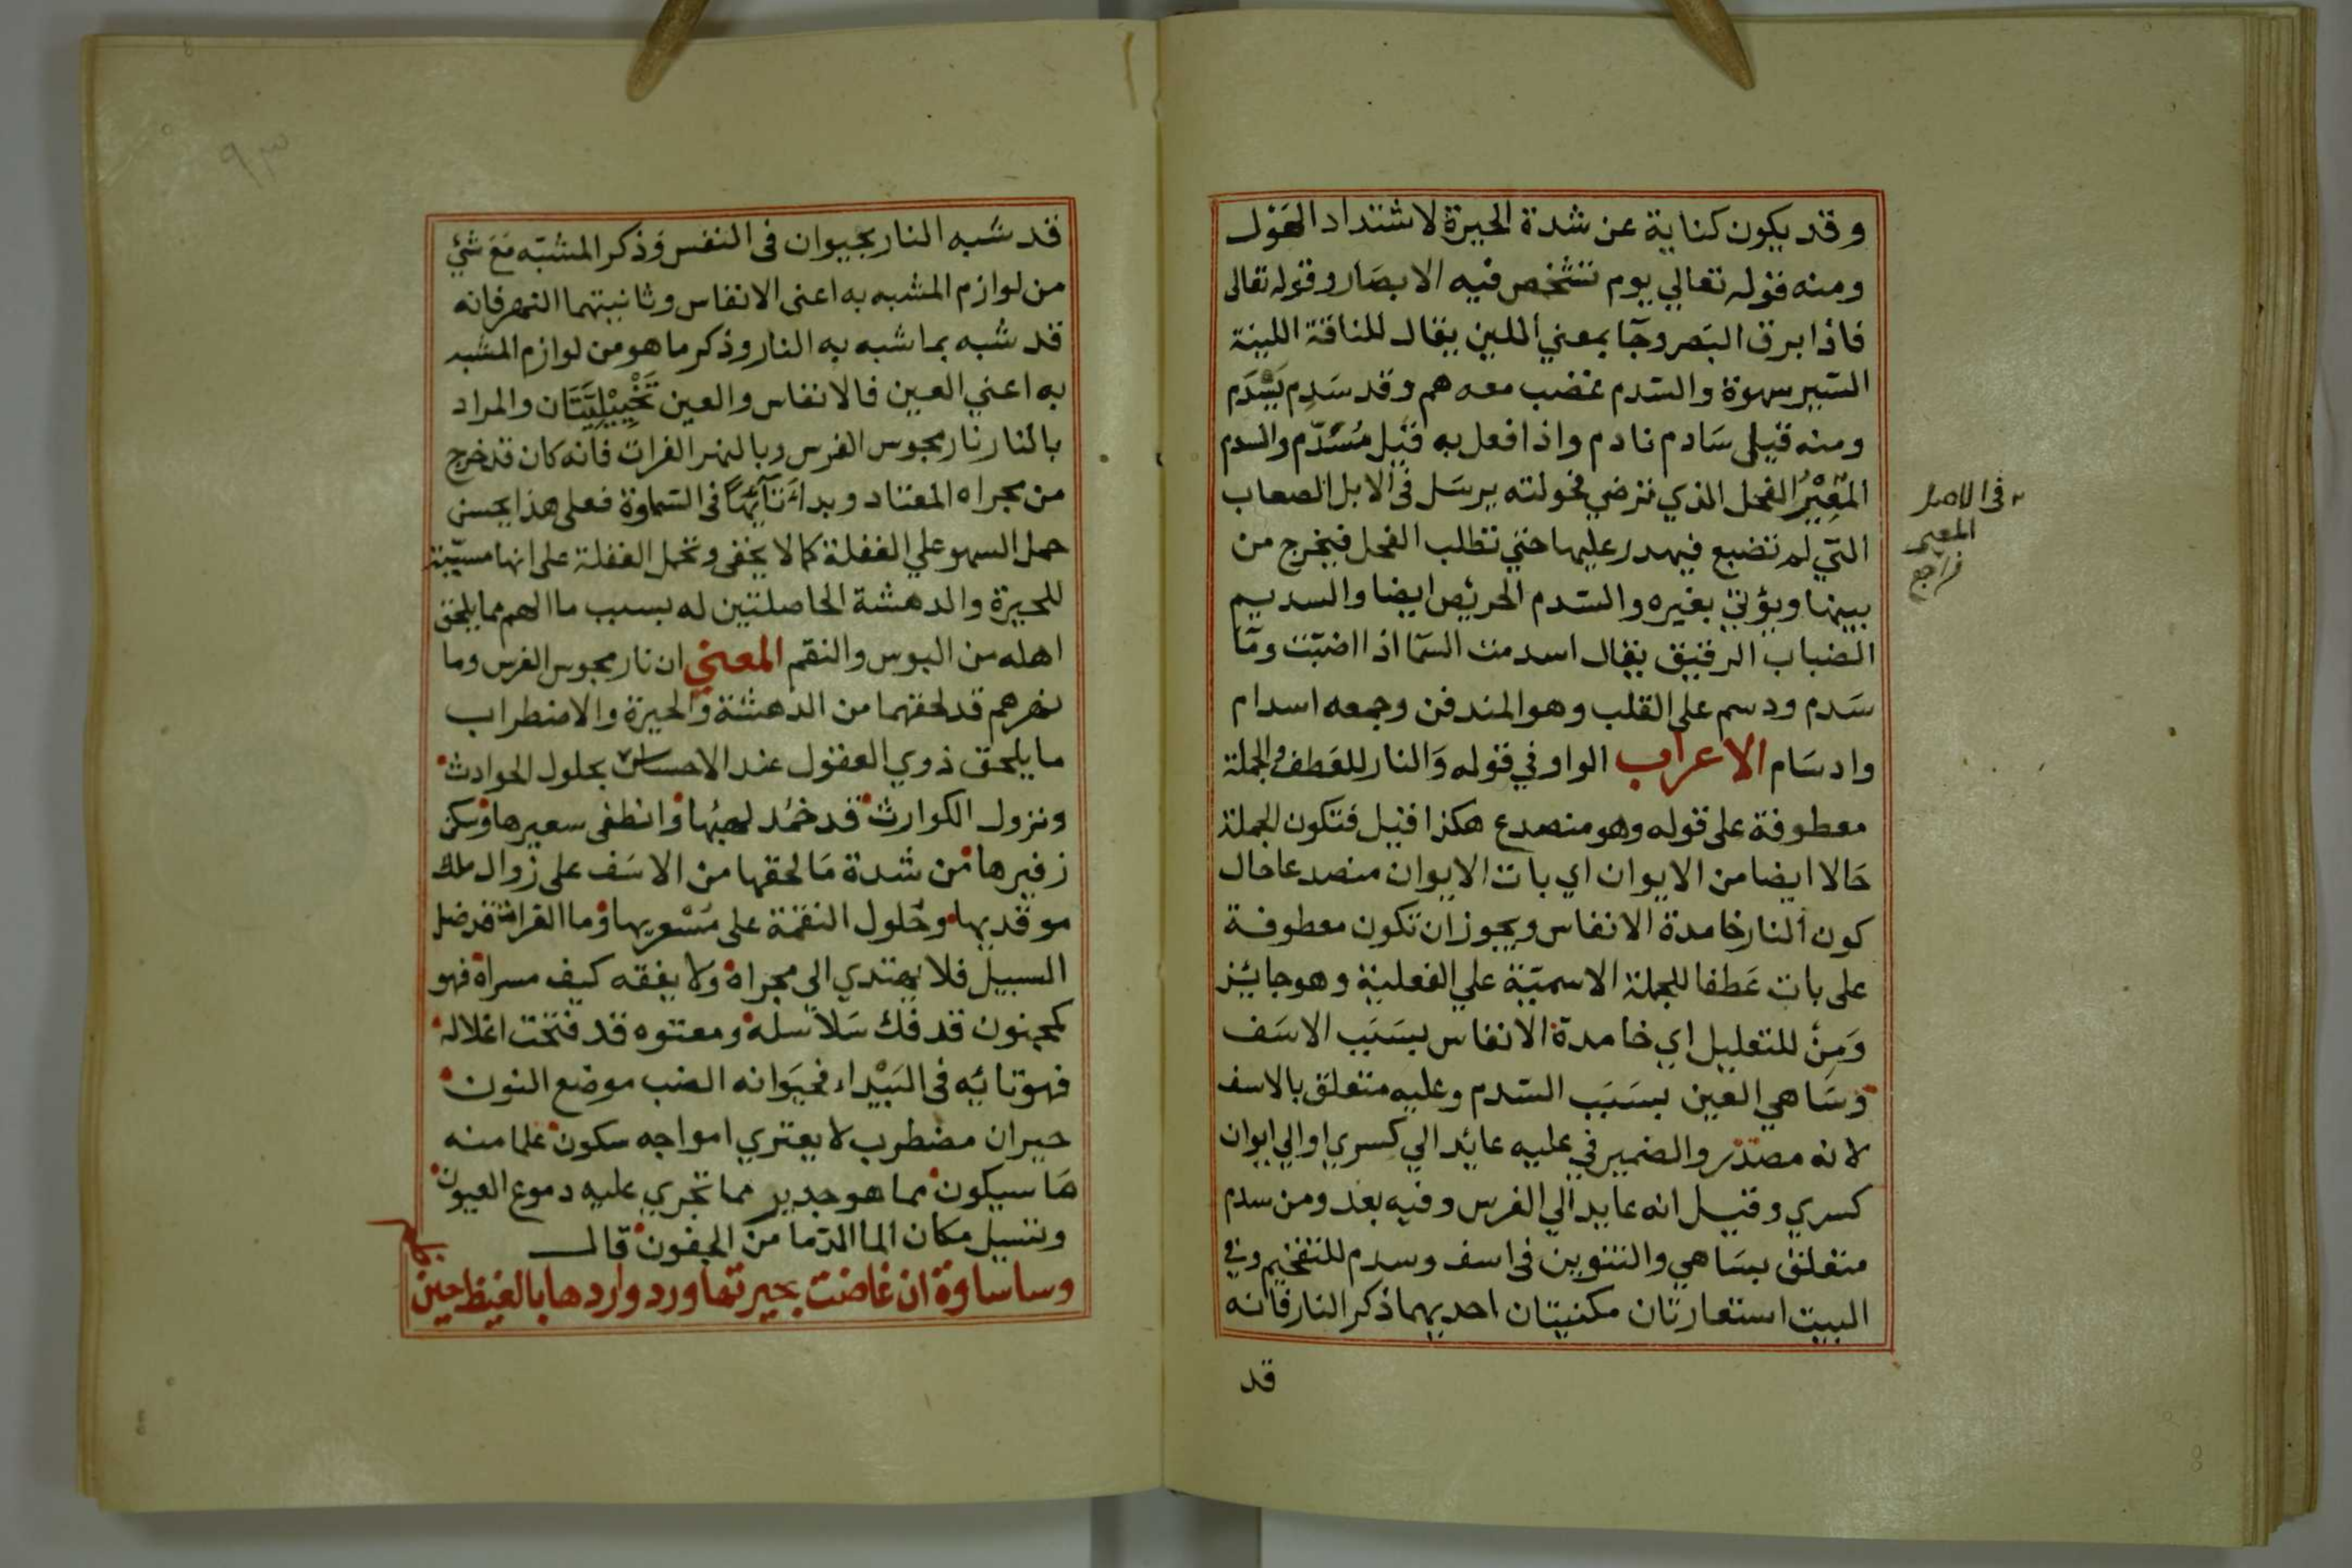 وقد يكون كناية عن شدة الحيرة لاشتداد الهَوْل
ومنه قوله تعالي يوم تشخص فيه الابصَار وقوله تعالى
فاذا برق البَصر وجَآ بمعني اللين يقال للناقة اللينة
السّير سهوة والسّدم غضب معه هم وقد سَدِم يَسْدَم
ومنه قيلى سَادم نادم واذا فعل به قيل مُسَدّم والسدم
المّعِيْرُ الفحل الذي ترضي فحولته يرسَل فى الابل الصعاب
التي لم تضبع فيهدر عليها حتي تطلب الفحل فيخرج من
بينها ويؤتي بغيره والسّدم الحريص ايضا والسديم
الضباب الرقيق يقال اسدمت السَّما اذا اضبّت ومَا
سَدم ودسم على القلب وهو المندفن وجمعه اسدام
وادسَام الاعراب الواو في قوله وَالنار للعَطف والجملة
معطوفة على قوله وهو منصدع هكذا قيل فتكون الجملة
حَالا ايضا من الايوان اي بات الايوان منصدعا حال
كون النار خامدة الانفاس ويجوز ان تكون معطوفة
على بات عَطفا للجملة الاسميّة علي الفعلية وهو جائز
وَمِنْ للتعليل اي خامدة الانفاس بسَبَب الاسَف
وسَاهي العين بسَبَب السّدم وعليه متعلق بالاسف
لانه مصدر والضمير في عليه عائد الي كسري او الي ايوان
كسري وقيل انه عايد الي الفرس وفيه بعد ومن سدم
متعلق بسَاهي والتنوين فى اسف وسدم للتفخيم وفي
البيت استعارتان مكنيتان احديهما ذكر النار فانه
قد
في الاصل
المعير
فراجع
٩٣
قد شبه النار بحيوان فى النفس وَذكر المشبّه مَعَ شئ
من لوازم المشبه به اعنى الانفاس وثانيتهما النهر فانه
قد شبه بما شبه به النار وذكر ما هو من لوازم المشبه
به اعني العين فالانفاس والعين تَخْيِيْلِيَّتَان والمراد
بالنار نار مجوس الفرس وبالنهر الفرات فانه كان قد خرج
من مجراه المعتاد وبدا تَائِهًا فى السّماوة فعلى هذا يحسن
حمل السهو علي الغفلة كما لا يخفى وتحمل الغفلة على انها مسبّبة
للحيرة والدهشة الحاصلتين له بسبب ما الهم مما يلحق
اهله من البوس والنقم المعني ان نار مجوس الفرس وما
نهرهم قد لحقهما من الدهشة وَالحيرة والاضطراب
ما يلحق ذوي العقول عند الاحساس بحلول الحوادث
ونزول الكوارث قد خمُد لهيبُها وانطفى سعيرها وسكن
زفيرها من شدة مَا لحقها من الاسَف على زوال ملك
موقديها وحُلول النقمة على مُسْعريها وما الفرات قد ضل
السبيل فلا يهتدي الى مجراه ولا يفقه كيف مسراه فهو
كمجنون قد فك سَلاسله ومعتوه قد فتحت اغلاله
فهو تائِه في البَيْداء فحيَوانه الضب موضع النون
حيران مضطرب لا يعتري امواجه سكون علما منه
هَا سيكون مما هو جدير مما تجري عليه دموع العيون
وتسيل مكان الما الدّما من الجفون قال
وسا ساوة ان غاضت بحيرتها ورد واردها بالغيظ حين